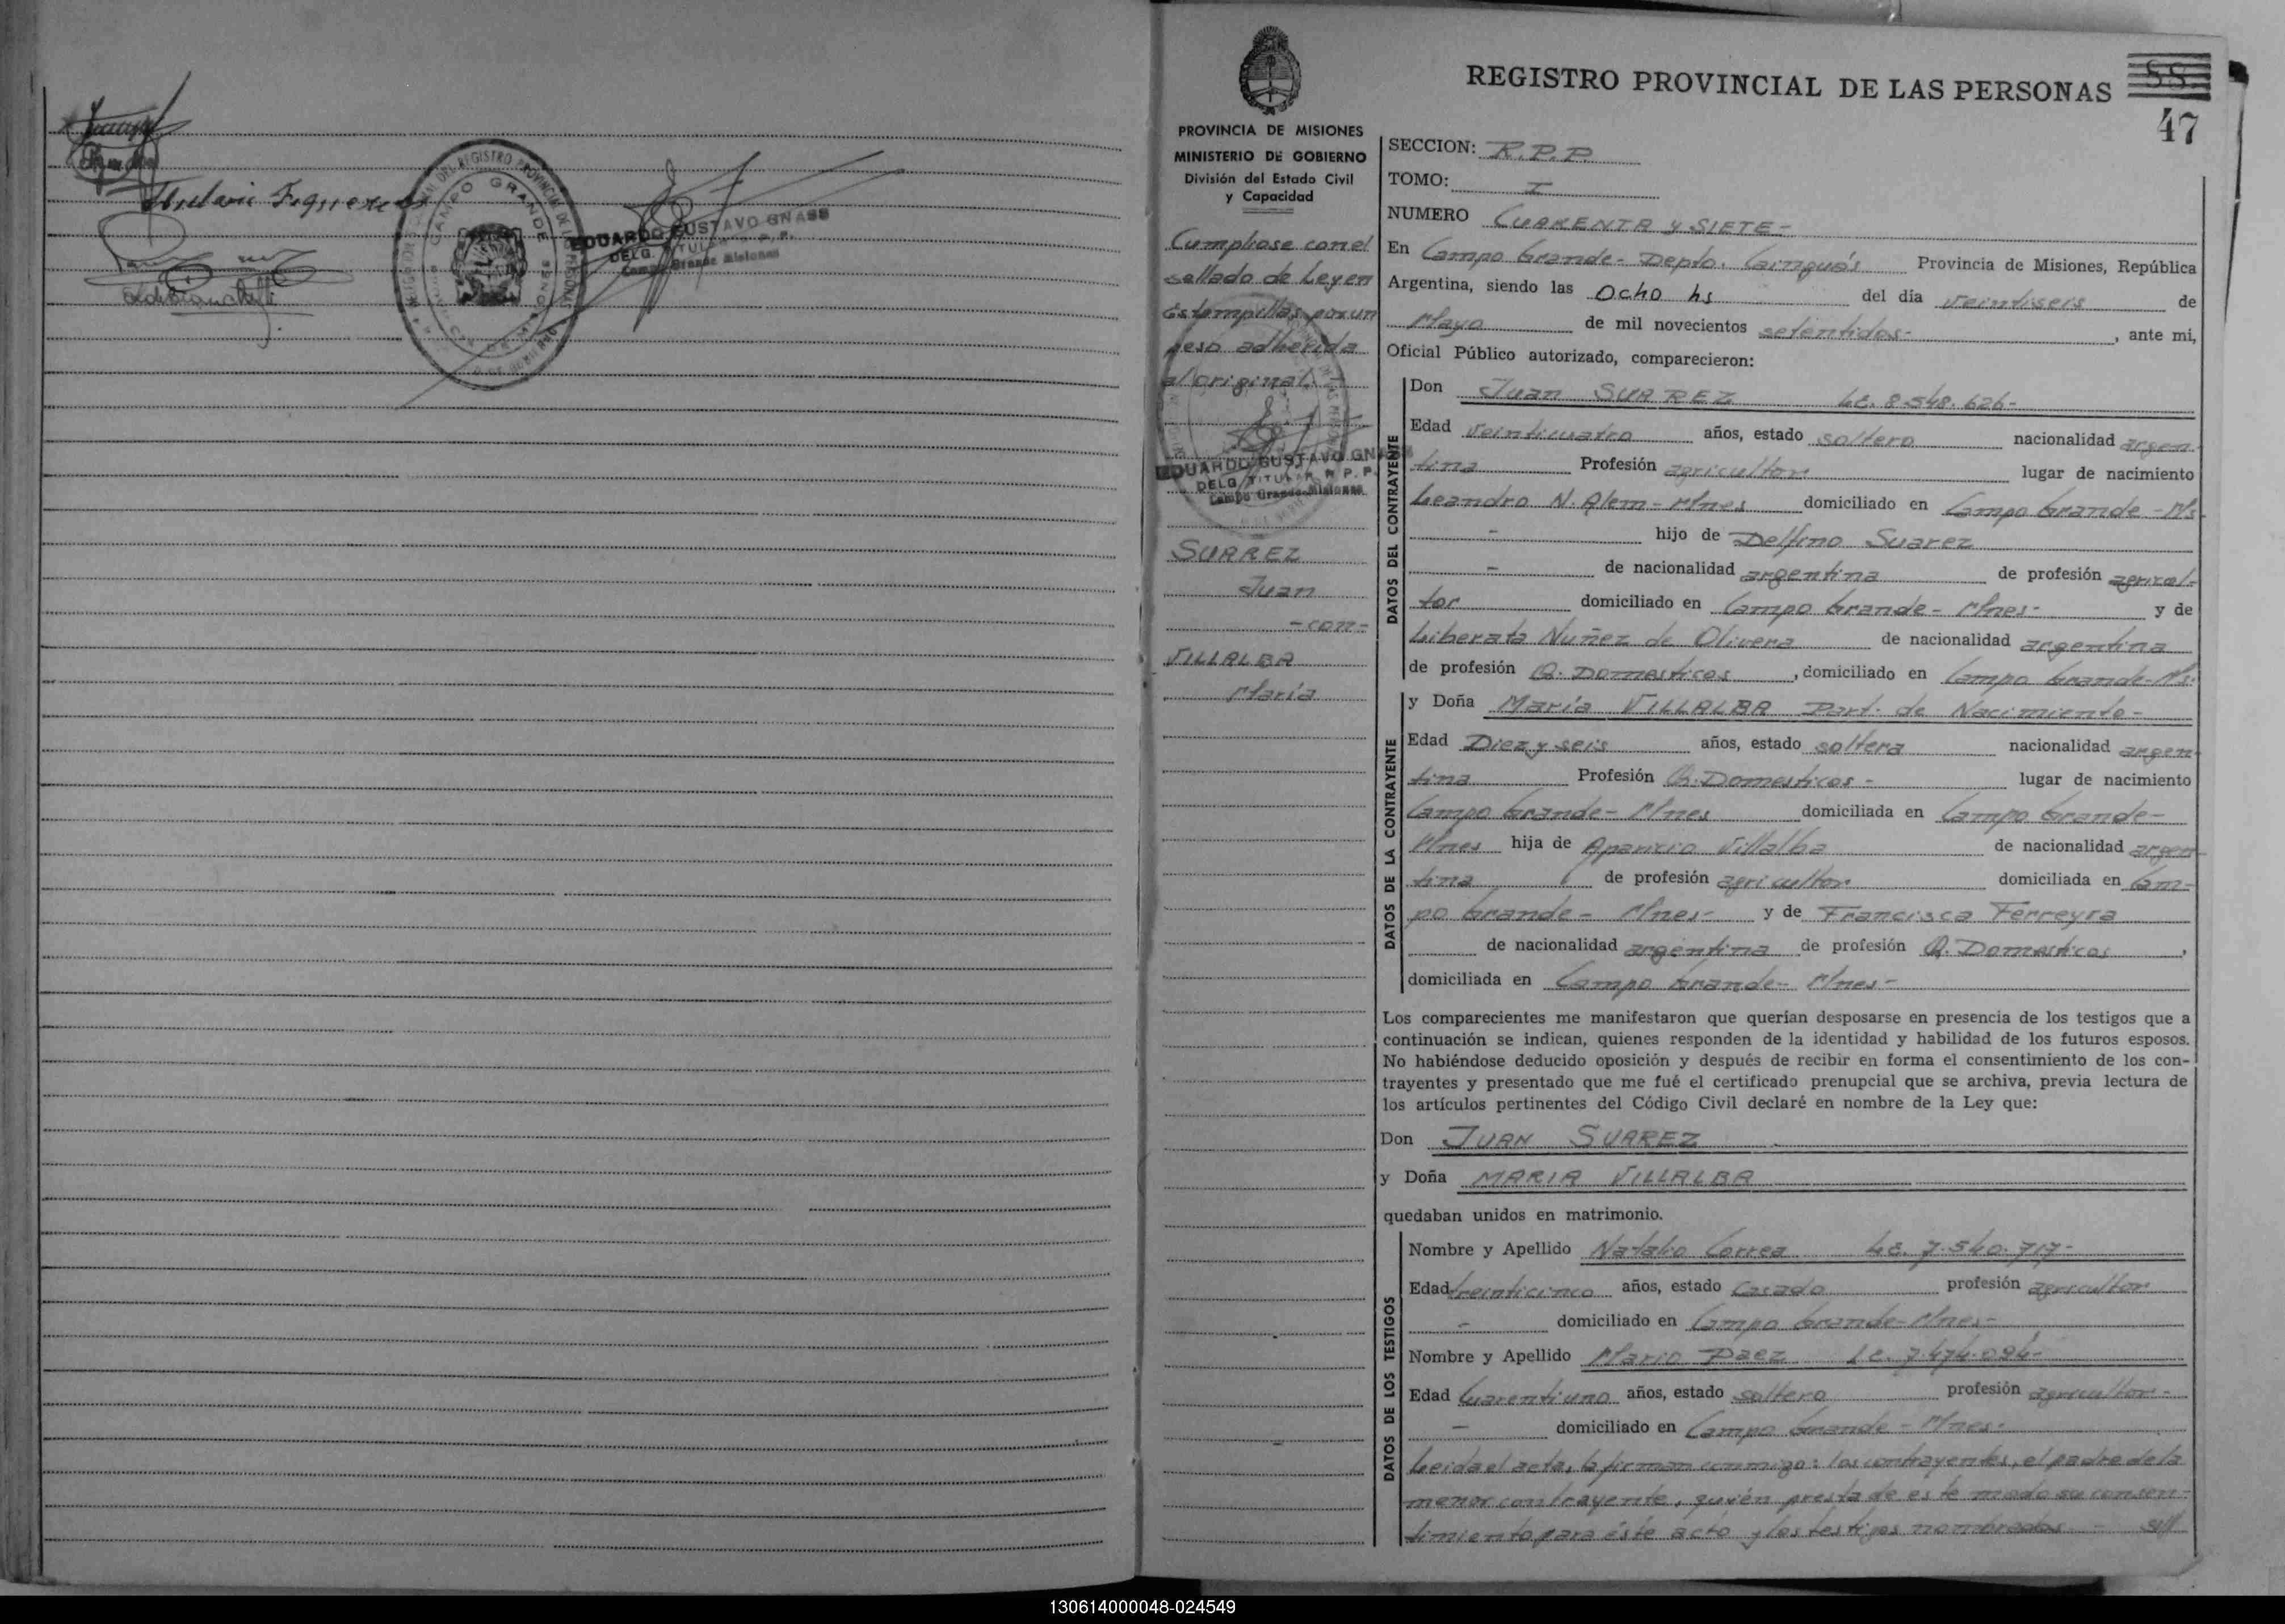 EDUARDO GUSTAVO GNASS
DELG. TITULAR R. P. P.
Campo Grande Misiones
CAMPO GRANDE
REGISTRO PROVINCIAL DE LAS PERSONAS
88
47
PROVINCIA DE MISIONES
MINISTERIO DE GOBIERNO
División del Estado Civil
y Capacidad
Cumpliose con el
sellado de Ley en
Estampillas por un
peso adherida
al original.-
EDUARDO GUSTAVO GNASS
DELG. TITULAR R. P. P.
Campo Grande-Misiones
SUAREZ
Juan
-con-
VILLALBA
María
SECCION: R.P.P.
TOMO: I
NUMERO CUARENTA y SIETE-
En Campo Grande- Depto. Cainguás Provincia de Misiones, República
Argentina, siendo las Ocho hs del día veintiseis de
Mayo de mil novecientos setentidos- , ante mi,
Oficial Público autorizado, comparecieron:
DATOS DEL CONTRAYENTE
Don Juan SUAREZ L.E. 8.548.626-
Edad veinticuatro años, estado soltero nacionalidad argen-
tina Profesión agricultor lugar de nacimiento
Leandro N. Alem - Mnes domiciliado en Campo Grande - Ms.
- hijo de Delfino Suarez
- de nacionalidad argentina de profesión agricul-
tor domiciliado en Campo Grande- Mnes- y de
Liberata Nuñez de Olivera de nacionalidad argentina
de profesión Q. Domesticos , domiciliado en Campo Grande-Ms.
DATOS DE LA CONTRAYENTE
y Doña María VILLALBA Part. de Nacimiento-
Edad Diez y seis años, estado soltera nacionalidad argen-
tina Profesión Q. Domesticos - lugar de nacimiento
Campo Grande- Mnes domiciliada en Campo Grande-
Mnes hija de Aparicio Villalba de nacionalidad argen-
tina de profesión agricultor domiciliada en Cam-
po Grande- Mnes- y de Francisca Ferreyra
de nacionalidad argentina de profesión Q. Domesticos ,
domiciliada en Campo Grande- Mnes-
Los comparecientes me manifestaron que querían desposarse en presencia de los testigos que a
continuación se indican, quienes responden de la identidad y habilidad de los futuros esposos.
No habiéndose deducido oposición y después de recibir en forma el consentimiento de los con-
trayentes y presentado que me fué el certificado prenupcial que se archiva, previa lectura de
los artículos pertinentes del Código Civil declaré en nombre de la Ley que:
Don JUAN SUAREZ
y Doña MARIA VILLALBA
quedaban unidos en matrimonio.
DATOS DE LOS TESTIGOS
Nombre y Apellido Natalio Correa L.E. 7.540.717-
Edad treinticinco años, estado casado profesión agricultor
- domiciliado en Campo Grande-Mnes-
Nombre y Apellido Mario Paez L.E. 7.474.094-
Edad Cuarentiuno años, estado soltero profesión agricultor-
- domiciliado en Campo Grande - Mnes-
Leida el acta, la firman conmigo: los contrayentes, el padre de la
menor contrayente, quién presta de este modo su consen-
timiento para éste acto y los testigos nombrados -
130614000048-024549